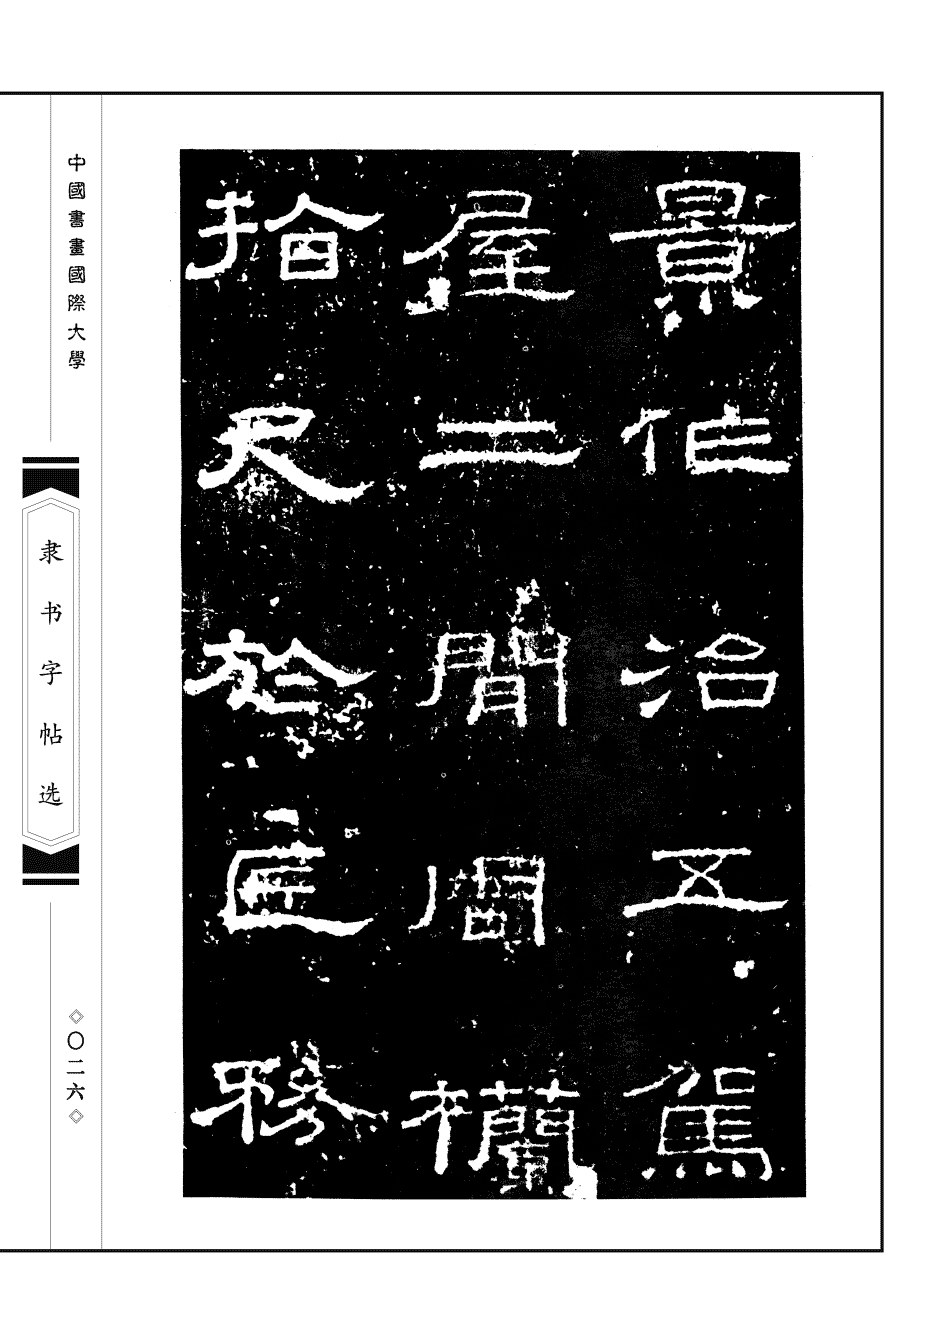 景作治五駕
屋二間周欄
拾尺於匠務
中國書畫國際大學
隶书字帖选
◇〇二六◇